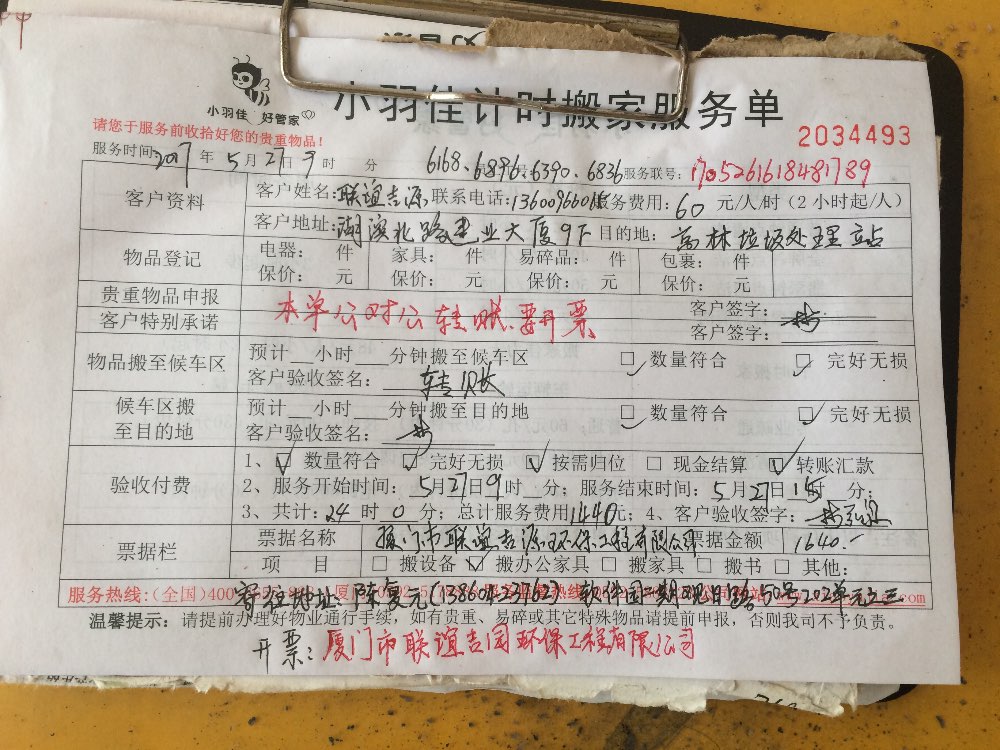 小羽佳 好管家
小羽佳计时搬家服务单
2034493
请您于服务前收拾好您的贵重物品!
服务时间:2017年5月27日9时 分 6168、6896、6390、6836 服务联号:
客户资料 客户姓名:联谊吉源 联系电话: 服务费用:60元/人/时(2小时起/人)
客户地址:湖滨北路建业大厦9F 目的地:高林垃圾处理站
物品登记 电器: 件 家具: 件 易碎品: 件 包裹: 件
保价: 元 保价: 元 保价: 元 保价: 元
贵重物品申报 客户签字:
客户特别承诺 本单公对公转账、要开票 客户签字:
物品搬至候车区 预计__小时__分钟搬至候车区 数量符合 完好无损
客户验收签名:转账
候车区搬至目的地 预计__小时__分钟搬至目的地 数量符合 完好无损
客户验收签名:
验收付费 1、数量符合 完好无损 按需归位 现金结算 转账汇款
2、服务开始时间:5月27日9时__分;服务结束时间:5月27日15时__分;
3、共计:24时0分;总计服务费用1440元;4、客户验收签字:
票据栏 票据名称 厦门市联谊吉源环保工程有限公司 票据金额 1640.-
项 目 搬设备 搬办公家具 搬家具 搬书 其他:
服务热线:(全国)400
寄往地址: 软件园二期观日路50号202单元之三
温馨提示:请提前办理好物业通行手续,如有贵重、易碎或其它特殊物品请提前申报,否则我司不予负责。
开票:厦门市联谊吉园环保工程有限公司